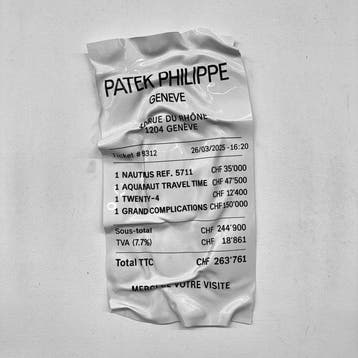 PATEK PHILIPPE
GENEVE
RUE DU RHÔNE
1204 GENÈVE
Ticket #8312 26/03/2025 - 16:20
1 NAUTILUS REF. 5711 CHF 35'000
1 AQUANAUT TRAVEL TIME CHF 47'500
1 TWENTY-4 CHF 12'400
1 GRAND COMPLICATIONS CHF 150'000
Sous-total CHF 244'900
TVA (7.7%) CHF 18'861
Total TTC CHF 263'761
MERCI DE VOTRE VISITE